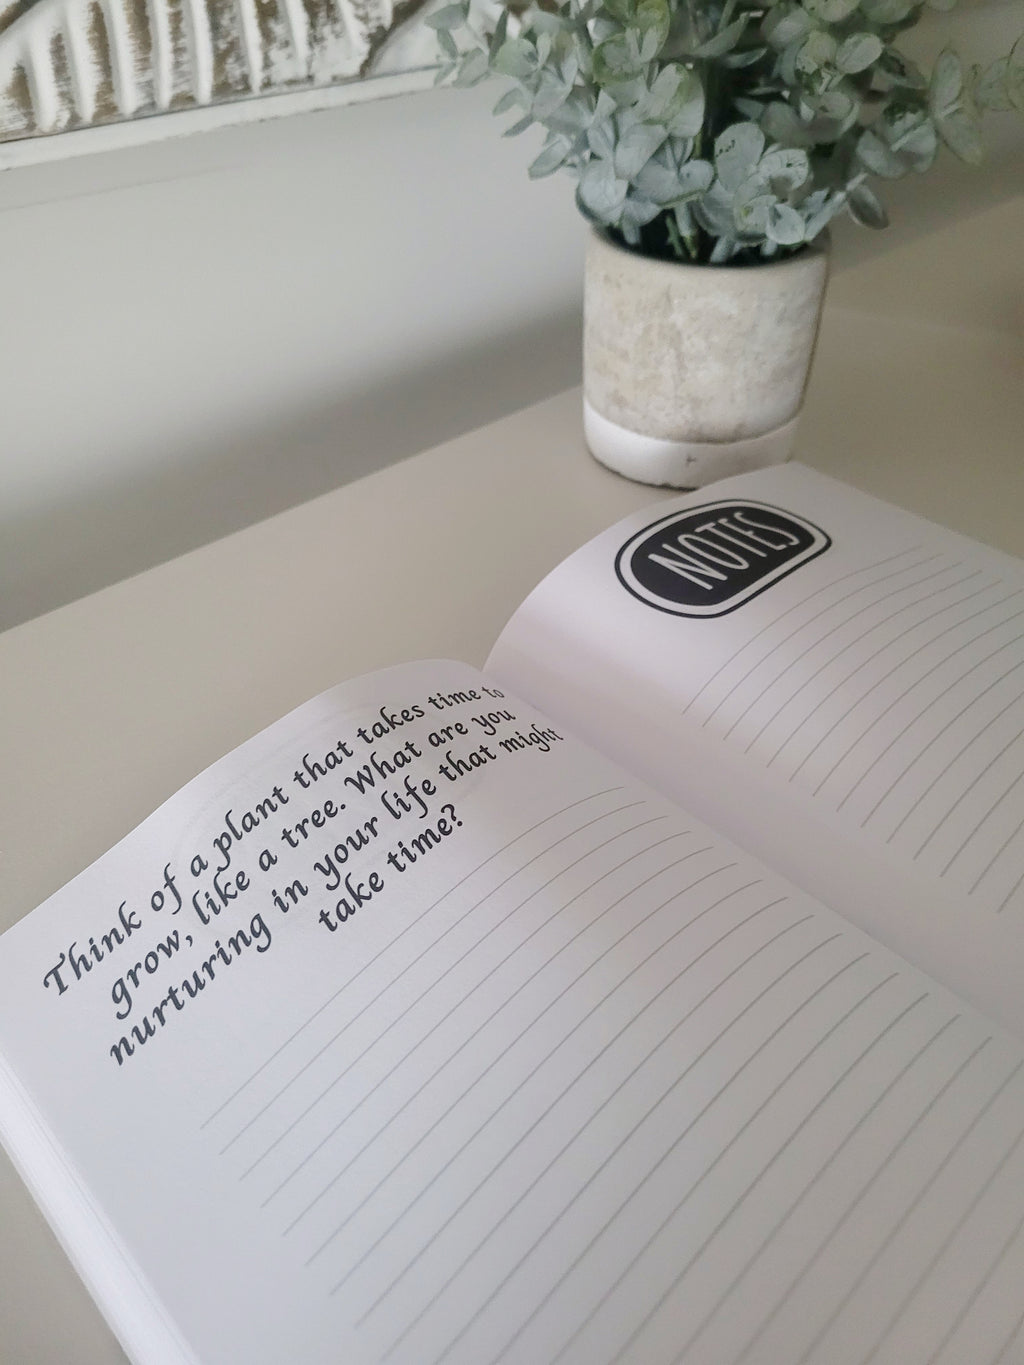 Think of a plant that takes time to
grow, like a tree. What are you
nurturing in your life that might
take time?
NOTES